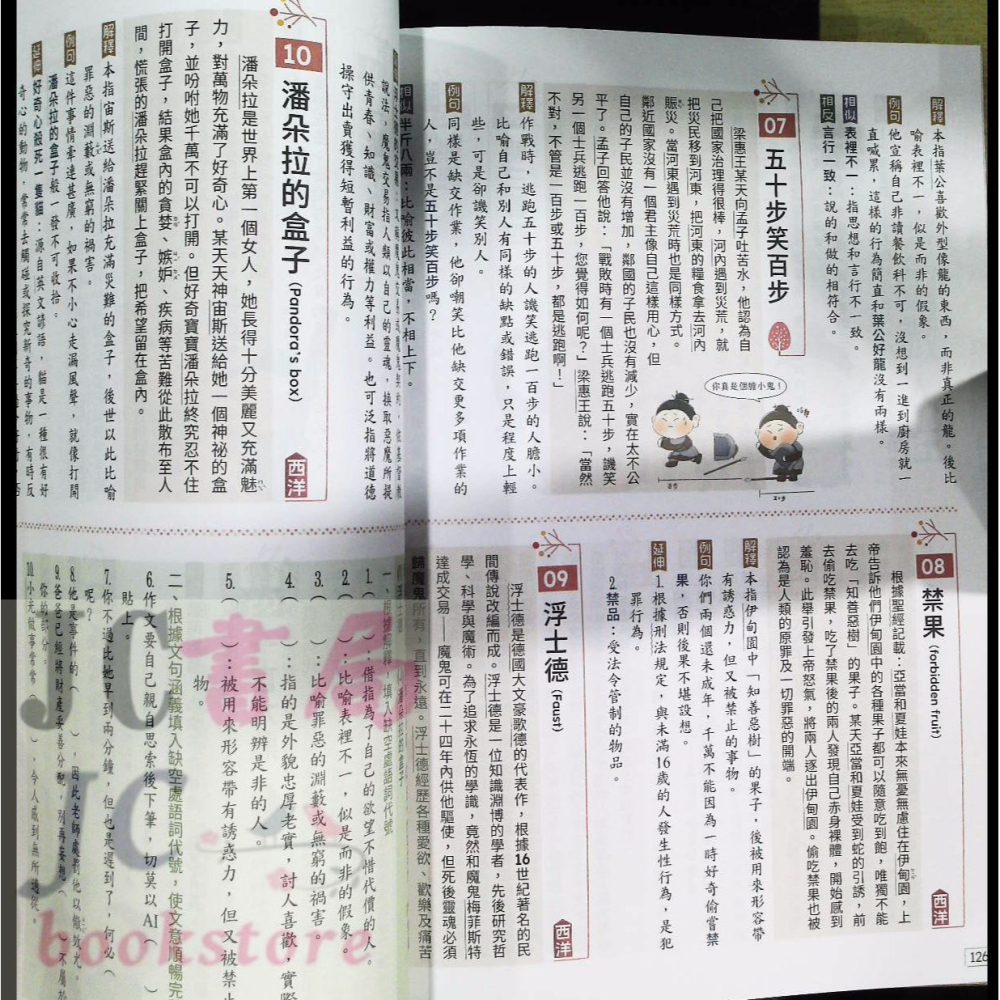 解釋 本指葉公喜歡外型像龍的東西，而非真正的龍。後比
喻表裡不一，似是而非的假象。
例句 他宣稱自己非讀餐飲科不可，沒想到一進到廚房就一
直喊累，這樣的行為簡直和葉公好龍沒有兩樣。
相似 表裡不一：指思想和言行不一致。
相反 言行一致：說的和做的相符合。
07 五十步笑百步
梁惠王某天向孟子吐苦水，他認為自
己把國家治理得很棒，河內遇到災荒，就
把災民移到河東，把河東的糧食拿去河內
賑災。當河東遇到災荒時也是同樣方式。
鄰近國家沒有一個君主像自己這樣用心，但
自己的子民並沒有增加，鄰國的子民也沒有減少，實在太不公
平了。孟子回答他說：「戰敗時有一個士兵逃跑五十步，譏笑
另一個士兵逃跑一百步，您覺得如何呢？」梁惠王說：「當然
不對，不管是一百步或五十步，都是逃跑啊！」
你真是個膽小鬼！
解釋 作戰時，逃跑五十步的人譏笑逃跑一百步的人膽小。
比喻自己和別人有同樣的缺點或錯誤，只是程度上輕
些，可是卻譏笑別人。
例句 同樣是缺交作業，他卻嘲笑比他缺交更多項作業的
人，豈不是五十步笑百步嗎？
相似 半斤八兩：比喻彼此相當，不相上下。
08 禁果 (forbidden fruit) 西洋
根據聖經記載：亞當和夏娃本來無憂無慮住在伊甸園，上
帝告訴他們伊甸園中的各種果子都可以隨意吃到飽，唯獨不能
去吃「知善惡樹」的果子。某天亞當和夏娃受到蛇的引誘，前
去偷吃禁果，吃了禁果後的兩人發現自己赤身裸體，開始感到
羞恥。此舉引發上帝怒氣，將兩人逐出伊甸園。偷吃禁果也被
認為是人類的原罪及一切罪惡的開端。
解釋 本指伊甸園中「知善惡樹」的果子，後被用來形容帶
有誘惑力，但又被禁止的事物。
例句 你們兩個還未成年，千萬不能因為一時好奇偷嘗禁
果，否則後果不堪設想。
延伸 1.根據刑法規定，與未滿16歲的人發生性行為，是犯
罪行為。
2.禁品：受法令管制的物品。
09 浮士德 (Faust) 西洋
浮士德是德國大文豪歌德的代表作，根據16世紀著名的民
間傳說改編而成。浮士德是一位知識淵博的學者，先後研究哲
學、科學與魔術。為了追求永恆的學識，竟然和魔鬼梅菲斯特
達成交易——魔鬼可在二十四年內供他驅使，但死後靈魂必須
歸魔鬼所有，直到永遠。浮士德經歷各種愛欲、歡樂及痛苦
126
說法，魔鬼交易指人類以自己的靈魂，換取惡魔所提
供青春、知識、財富或權力等利益。也可泛指將道德
操守出賣獲得短暫利益的行為。
10 潘朵拉的盒子 (Pandora's box) 西洋
潘朵拉是世界上第一個女人，她長得十分美麗又充滿魅
力，對萬物充滿了好奇心。某天天神宙斯送給她一個神祕的盒
子，並吩咐她千萬不可以打開。但好奇寶寶潘朵拉終究忍不住
打開盒子，結果盒內的貪婪、嫉妒、疾病等苦難從此散布至人
間，慌張的潘朵拉趕緊關上盒子，把希望留在盒內。
解釋 本指宙斯送給潘朵拉充滿災難的盒子，後世以此比喻
罪惡的淵藪或無窮的禍害。
例句 這件事情牽連甚廣，如果不小心走漏風聲，就像打開
潘朵拉的盒子般一發不可收拾。
延伸 好奇心殺死一隻貓：源自英文諺語，貓是一種很有好
奇心的動物，常常去觸碰或探究新奇的事物，有時反
填入缺空處語詞代號
1.（　）：借指為了自己的欲望不惜代價的人。
2.（　）：比喻表裡不一，似是而非的假象。
3.（　）：比喻罪惡的淵藪或無窮的禍害。
4.（　）：指的是外貌忠厚老實，討人喜歡，實際
不能明辨是非的人。
5.（　）：被用來形容帶有誘惑力，但又被禁止
物。
二、根據文句涵義填入缺空處語詞代號，使文意順暢完
6.作文要自己親自思索後下筆，切莫以AI（　）
貼上。
7.你不過比她早到兩分鐘，但也是遲到了，何必（
呢？
8.他是事件的（　）因此老師處罰他以儆效尤。
9.爸爸已經將財產妥善分配，別再妄想（　）不屬於
你的部分。
10.小元做事常常（　），令人感到無所適從。
JC書局
JC
bookstore